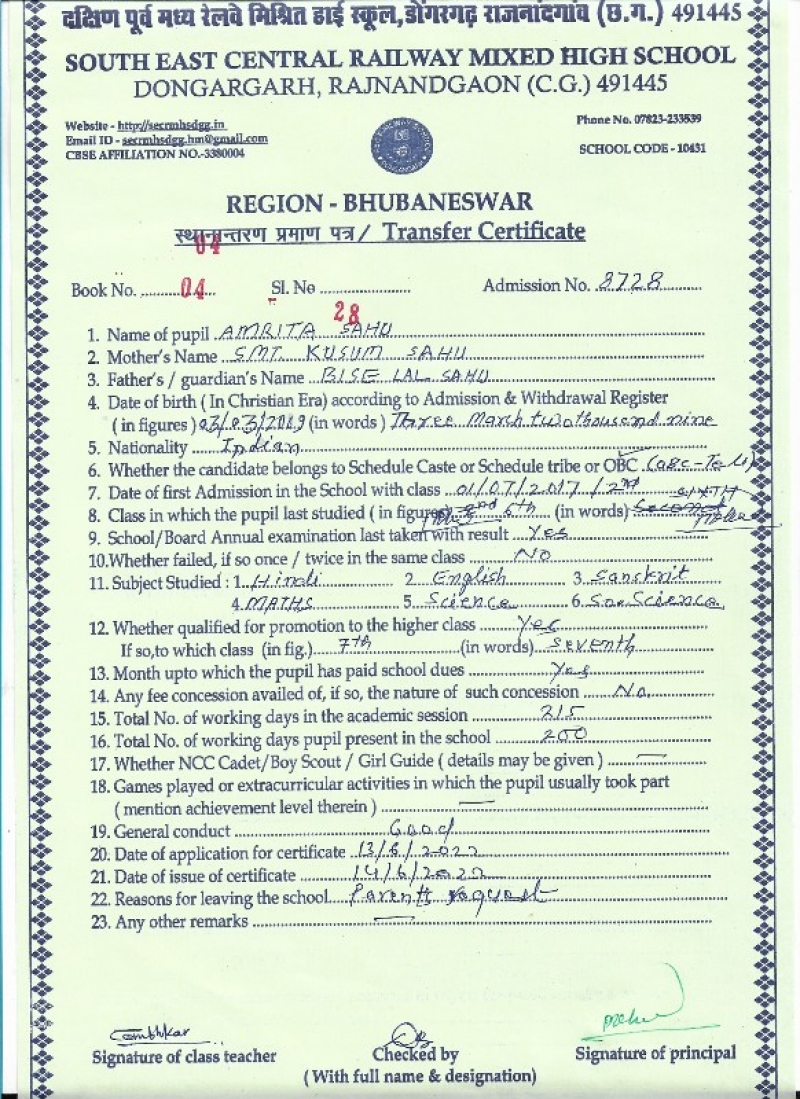 दक्षिण पूर्व मध्य रेलवे मिश्रित हाई स्कूल, डोंगरगढ़ राजनांदगांव (छ.ग.) 491445
SOUTH EAST CENTRAL RAILWAY MIXED HIGH SCHOOL
DONGARGARH, RAJNANDGAON (C.G.) 491445
Website - http://secrmhsdgg.in
Phone No. 07823-233539
Email ID - secrmhsdgg.hm@gmail.com
CBSE AFFILIATION NO.-3380004
SCHOOL CODE - 10431
REGION - BHUBANESWAR
स्थानान्तरण प्रमाण पत्र / Transfer Certificate
04
Book No. 04 Sl. No Admission No. 8728
28
1. Name of pupil AMRITA SAHU
2. Mother's Name SMT. KUSUM SAHU
3. Father's / guardian's Name BISE LAL SAHU
4. Date of birth ( In Christian Era) according to Admission & Withdrawal Register
( in figures ) 03/03/2009 (in words ) Three March two thousend nine
5. Nationality Indian
6. Whether the candidate belongs to Schedule Caste or Schedule tribe or OBC (OBC-Teli)
7. Date of first Admission in the School with class 01/07/2017 / 2nd
8. Class in which the pupil last studied ( in figures) 6th (in words) SIXTH
9. School/Board Annual examination last taken with result Yes
10. Whether failed, if so once / twice in the same class No
11. Subject Studied : 1. Hindi 2 English 3. Sanskrit
4. MATHS 5. Science 6. Soc Science
12. Whether qualified for promotion to the higher class Yes
If so,to which class (in fig.) 7th (in words) seventh
13. Month upto which the pupil has paid school dues Yes
14. Any fee concession availed of, if so, the nature of such concession No
15. Total No. of working days in the academic session 215
16. Total No. of working days pupil present in the school 200
17. Whether NCC Cadet/Boy Scout / Girl Guide ( details may be given ) —
18. Games played or extracurricular activities in which the pupil usually took part
( mention achievement level therein ) —
19. General conduct Good
20. Date of application for certificate 13/6/2022
21. Date of issue of certificate 14/6/2022
22. Reasons for leaving the school Parents request
23. Any other remarks —
Signature of class teacher
Checked by
Signature of principal
( With full name & designation)